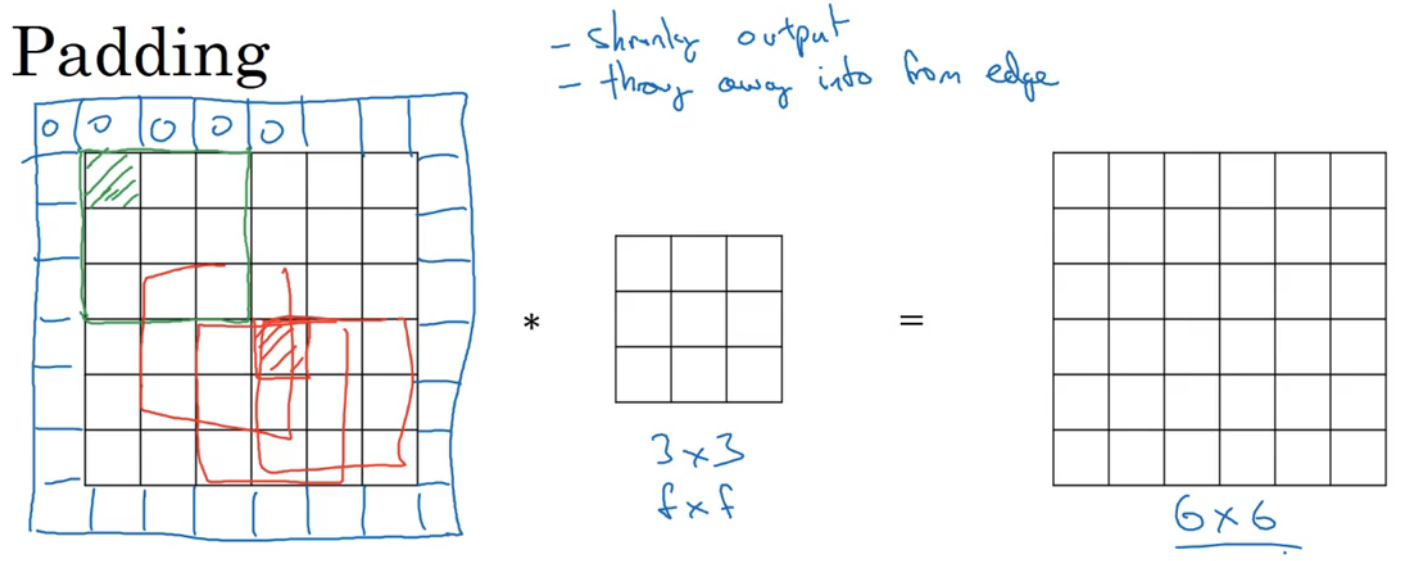 Padding
- shrinky output
- throw away info from edge
0 0 0 0 0
*
=
3×3
f×f
6×6